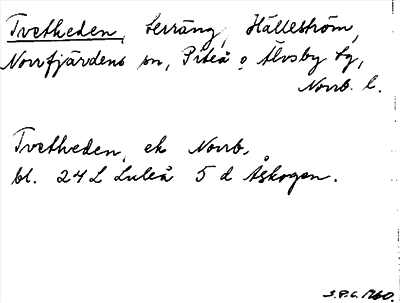 Tvetheden, Lerräng, Hälleström,
Norrfjärdens sn, Piteå o Älvsby tg,
Norrb. l.
Tvetheden, ek Norrb.
bl. 24 L Luleå 5 d Åskogen.
S.P.C. 1960.